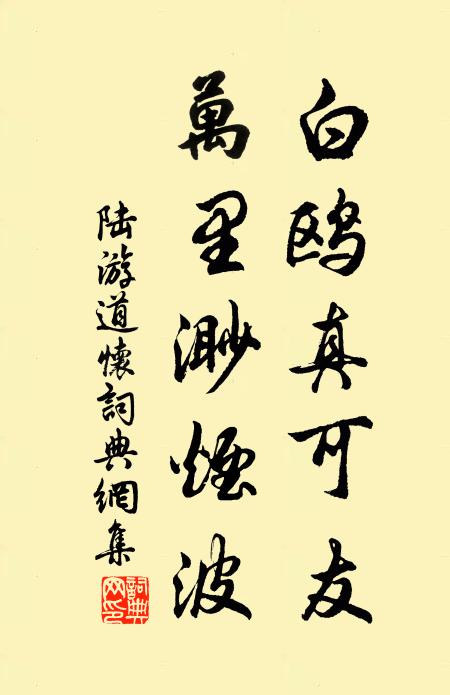 白鸥真可友
萬里渺煙波
陆游道懷詞典網集
詞典網印